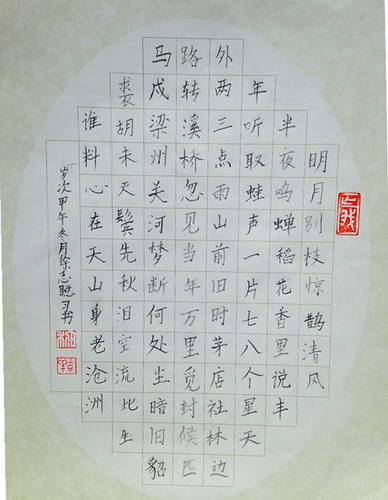 明月别枝惊鹊清风
半夜鸣蝉稻花香里说丰
年听取蛙声一片七八个星天
外两三点雨山前旧时茅店社林边
路转溪桥忽见当年万里觅封侯匹
马戍梁州关河梦断何处尘暗旧貂
裘胡未灭鬓先秋泪空流此生
谁料心在天山身老沧洲
岁次甲午冬月徐志习书